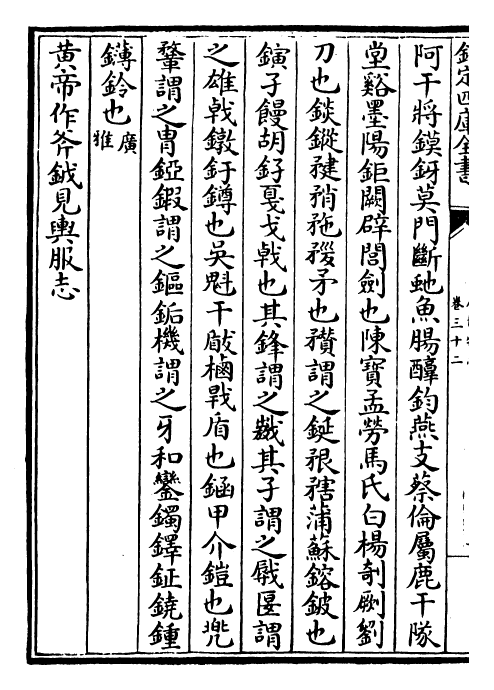 欽定四庫全書
卷三十二
阿干將鏌釾莫門斷虵魚腸醇鈞燕支蔡倫屬鹿干隊
堂谿墨陽鉅闕辟閭劍也陳寶孟勞馬氏白楊剞劂劉
刀也錟鏦䂩矟𥍸䂎矛也穳謂之鋋䂾𥎆蒲蘇鎔鈹也
鏔子鏝胡釨戛戈戟也其鋒謂之𢧢其子謂之戺匽謂
之雄戟鐓釪鐏也吳魁干瞂樐戰盾也鋡甲介鎧也兠
鞪謂之冑錏鍜謂之鏂銗機謂之牙和鑾鐲鐸鉦鐃鍾
鑮鈴也廣雅
黃帝作斧鉞見輿服志